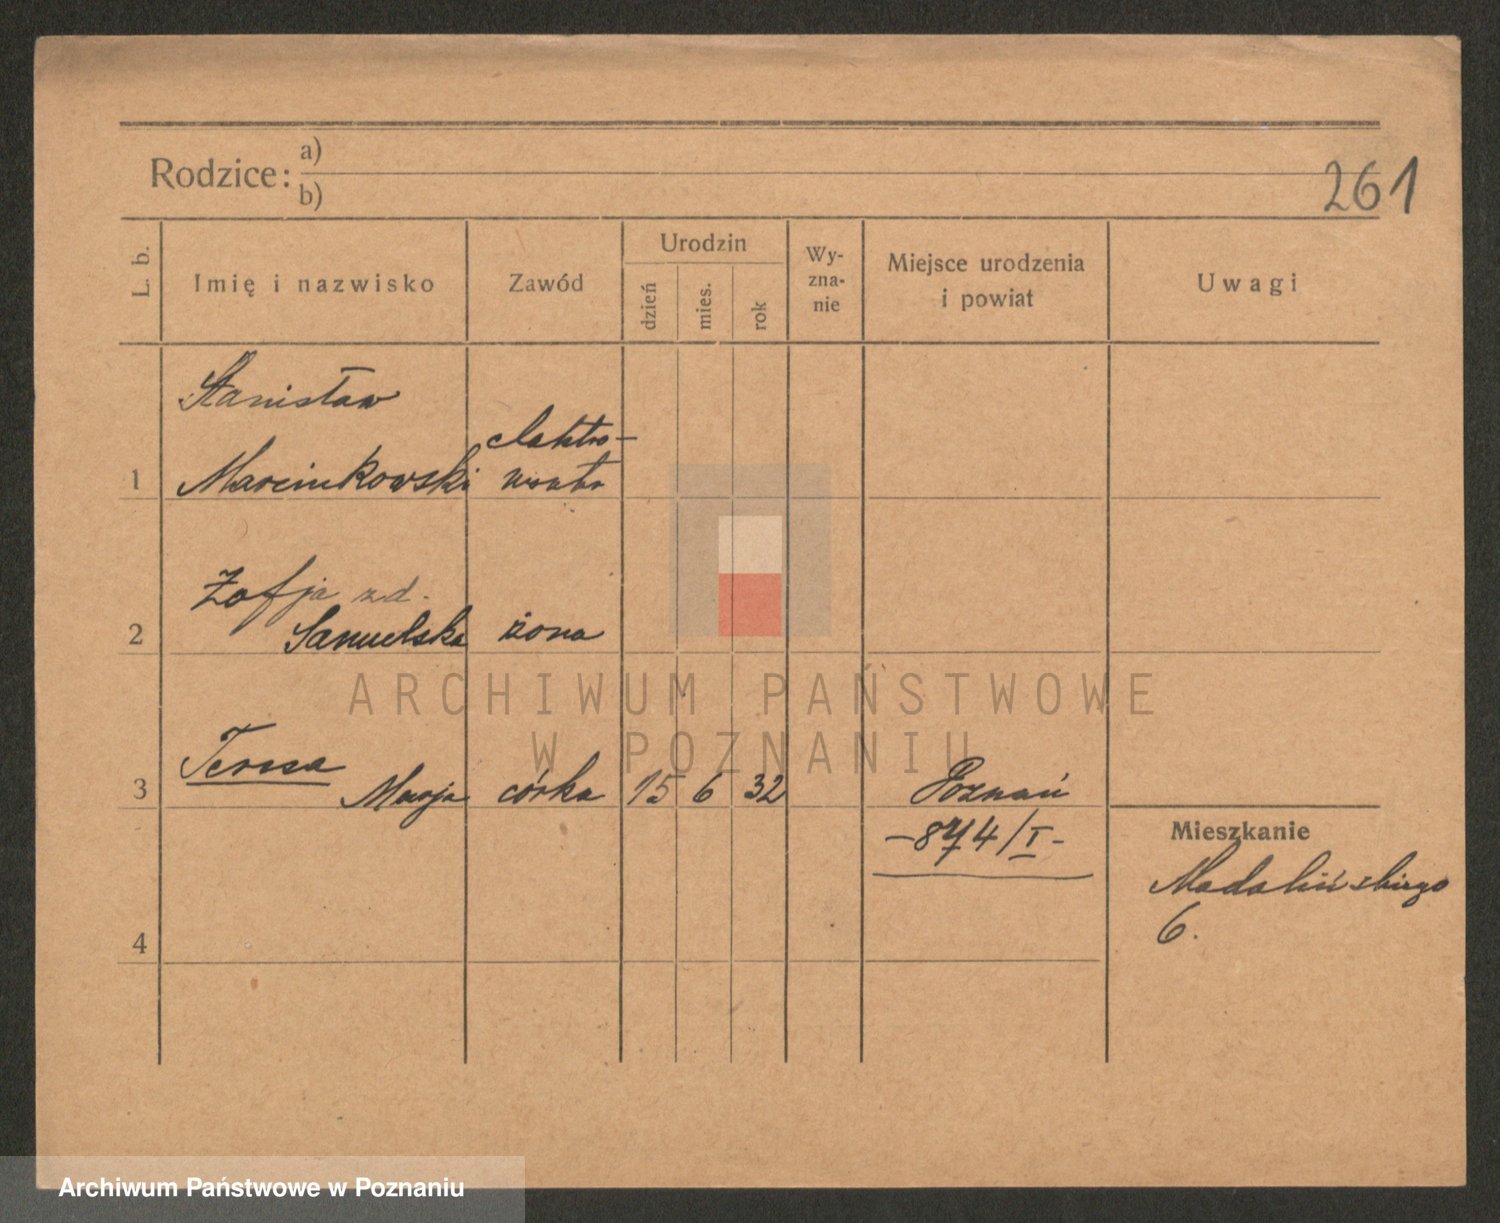 Rodzice:
a)
b)
261
L. b.
Imię i nazwisko
Zawód
Urodzin
dzień
mies.
rok
Wy-
zna-
nie
Miejsce urodzenia
i powiat
Uwagi
Stanisław
elektro-
1 Marcinkowski monter
Zofja zd.
2 Samuelska żona
Teresa
3 Marja córka 15 6 32 Poznań
-874/I-
Mieszkanie
Madalińskiego
6.
4
ARCHIWUM PAŃSTWOWE
W POZNANIU
Archiwum Państwowe w Poznaniu